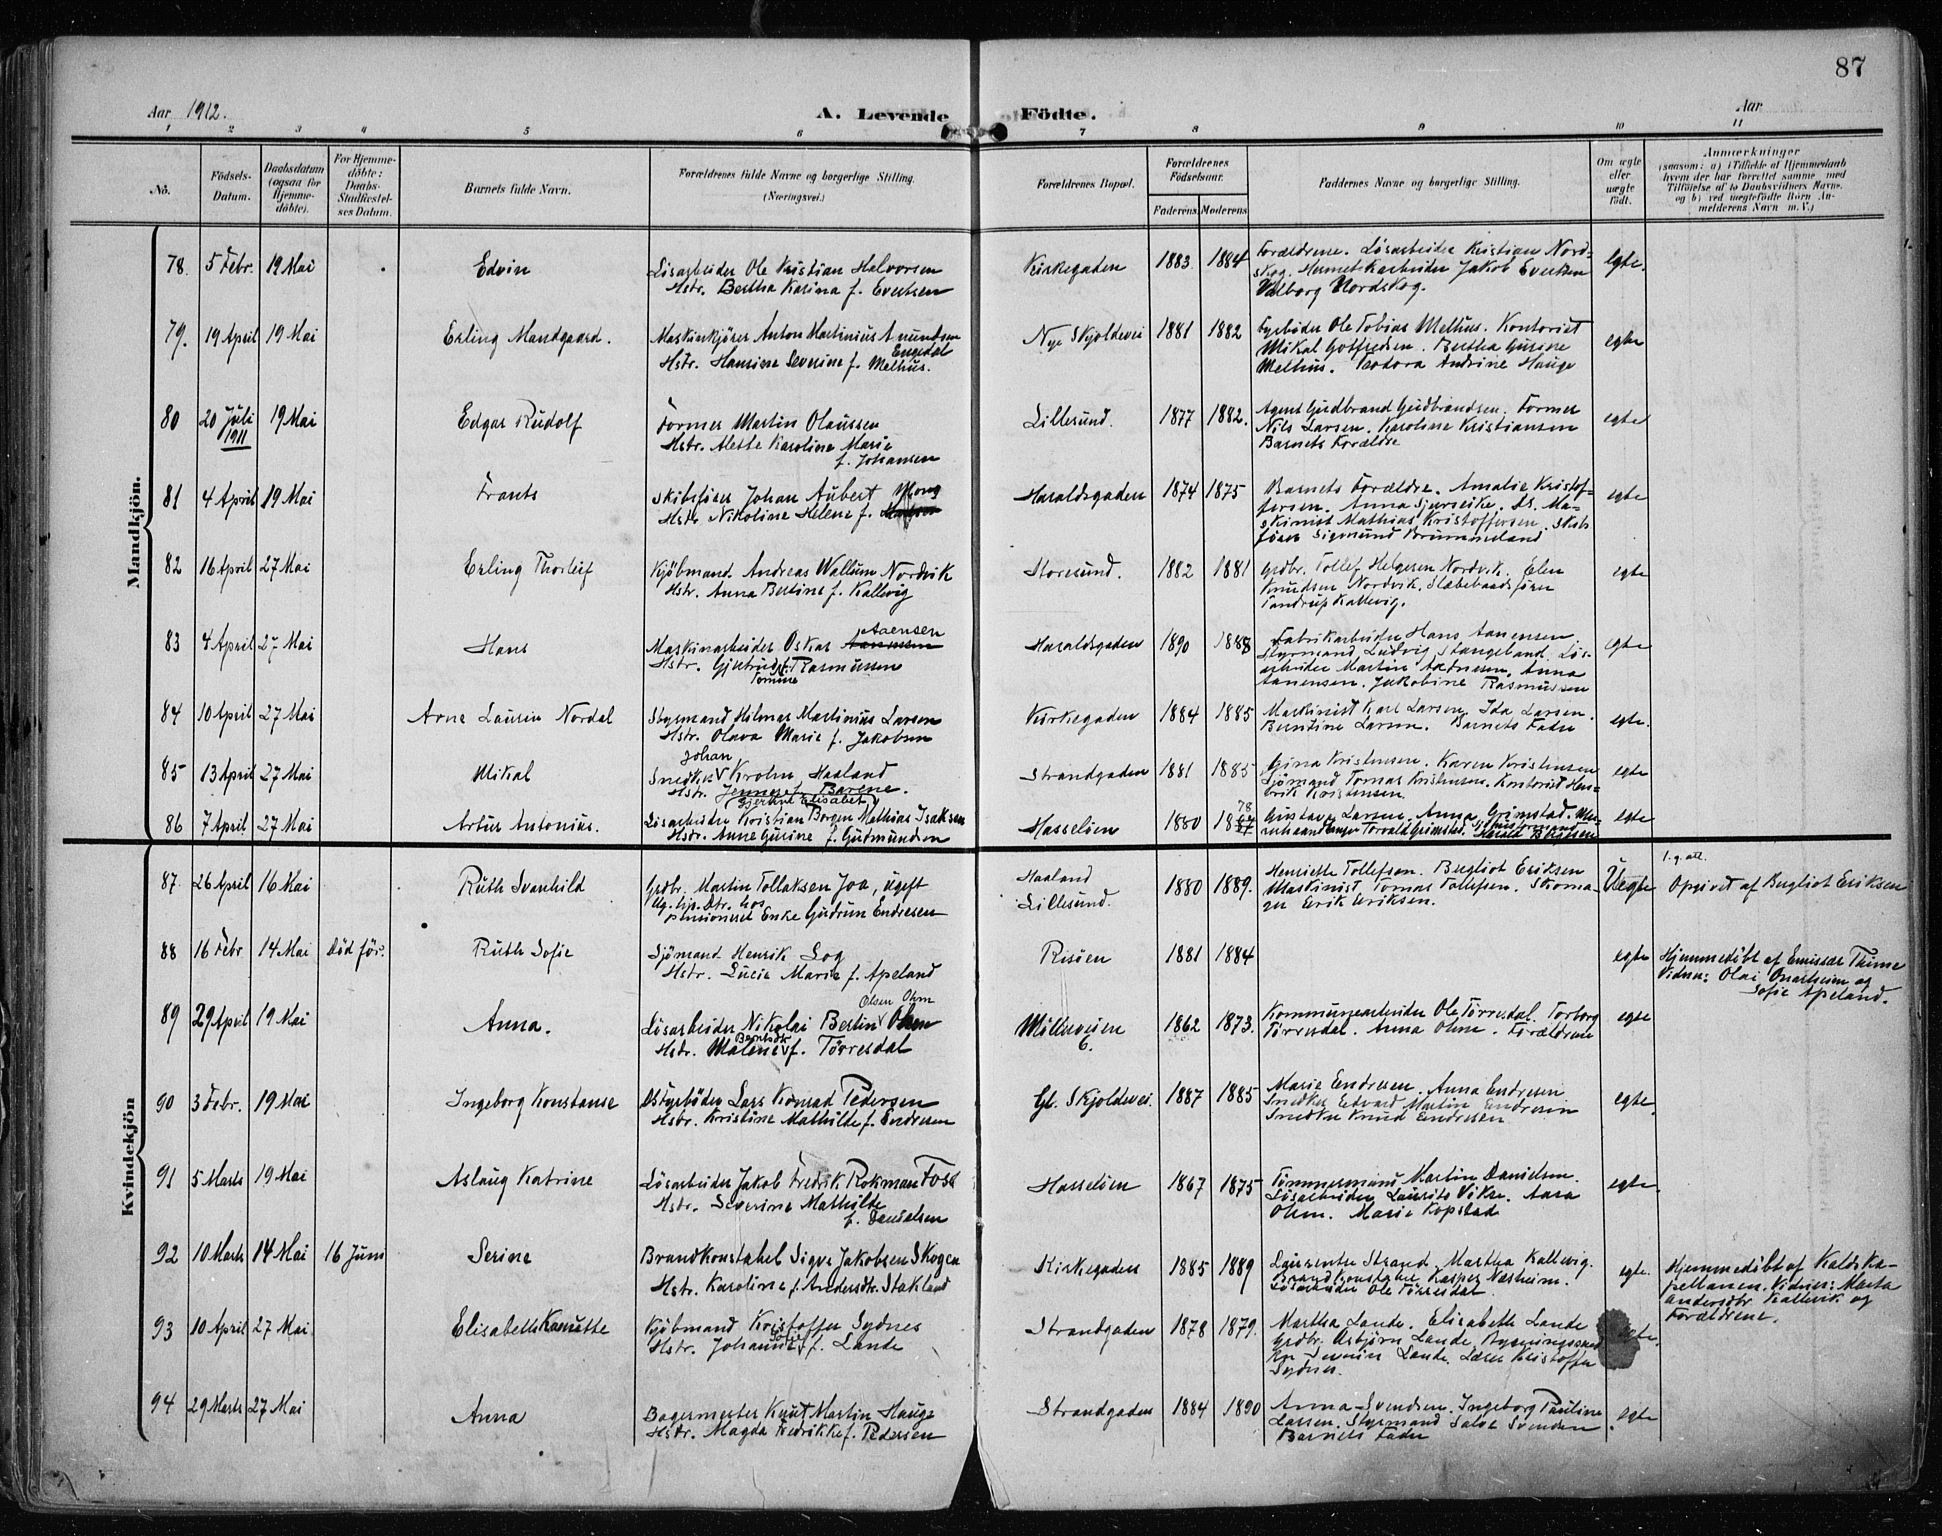 87
Aar 1912.
A. Levende Födte.
Aar
1 2 3 4 5 6 7 8 9 10 11
Nô.
Födsels-
Datum.
Daabsdatum
(ogsaa for
Hjemme-
döbte).
For Hjemme-
döbte:
Daabs-
Stadfæstel-
ses Datum.
Barnets fulde Navn.
Forældrenes fulde Navne og borgerlige Stilling.
(Næringsvei.)
Forældrenes Bopæl.
Forældrenes
Födselsaar.
Faderens Moderens
Faddernes Navne og borgerlige Stilling.
Om ægte
eller
uægte
födt.
Anmærkninger
(saasom: a) i Tilfælde af Hjemmedaab
hvem der har forrettet samme, med
Tilföielse af to Daabsvidners Navne,
og b) ved uægtefödte Börn An-
melderens Navn m. V.)
Mandkjön.
78. 5 Febr. 19 Mai Edvin
Lösarbeider Ole Kristian Halvorsen
Hstr. Bertha Karina f. Evertsen
Kirkegaden 1883 1884
Forældrene. Lösarbeider Kristian Nord-
skog. Hermetikarbeider Jakob Evertsen
Valborg Nordskog.
egte.
79. 19 April 19 Mai Erling Mandgaard.
Maskinkjörer Anton Martinius Amundsen
Engedal
Hstr. Hansine Severine f. Melhus.
Nye Skjoldevei 1881 1882
Fyrböder Ole Tobias Melhus. Kontorist
Mikal Gotfredsen. Bertha Gurine
Melhus. Teodora Andrine Hauge
egte
80 20 Juli 1911 19 Mai Edgar Rudolf
Former Martin Olaussen
Hstr. Alette Karoline Marie
f. Johansen
Lillesund. 1877 1882.
Agent Gudbrand Gudbrandsen. Former
Nils Larsen. Karoline Kristiansen
Barnets Forældre
egte
81 4 April 19 Mai Frants
Skibsförer Johan Aubert
Hstr. Nikoline Helene f.
Haraldsgaden 1874 1875
Barnets Forældre. Amalie Kristof-
fersen. Anna Ma-
skinist Mathias Kristoffersen. Skibs
förer Sigmund Brummeland
egte
82 16 April 27 Mai Erling Thorleif
Kjöbmand Andreas Wallum Nordvik
Hstr. Anna Bertine f. Kallevig
Storesund. 1882 1881
Grdbr. Tollef Helgesen Nordvik. Elen
Knudsen Nordvik. Slæbebaadsförer
Tandrup Kallevig.
egte
83 4 April 27 Mai Hans
Aaensen
Maskinarbeider Oskar
Hstr. Gjertrud f. Rasmussen
Tomine
Haraldsgaden 1890 1888
Fabrikarbeider Hans Aanensen.
Styrmand Ludvig Stangeland. Lös-
arbeider Martin Andresen. Anna
Aanensen. Jakobine Rasmussen
egte
84 10 April 27 Mai Arne Laurin Nordal
Styrmand Hilmar Martinius Larsen
Hstr. Olava Marie f. Jakobsen
Kirkegaden 1884 1885
Maskinist Karl Larsen. Ida Larsen.
Berntine Larsen. Barnets Fader
egte.
85 13 April 27 Mai Mikal
Johan
Snedker Krohn Haaland
Hstr. Jenny f. Barene.
Gjertine Elisabet
Strandgaden 1881 1885
Gina Kristensen. Karen Kristensen
Sjömand Tomas Kristensen. Kontorist Hen-
drik Kristensen
egte
86 7 April 27 Mai Artur Antonius.
Lösarbeider Kristian Borgen Mathias Isaksen
Hstr. Anne Gurine f. Gudmundsen
Hasselöen 1880 78
Gustava Larsen. Anna Grimstad.
Torvald Grimstad.
egte
Kvindekjön
87. 26 April 16 Mai Ruth Svanhild
Grdbr. Martin Tollaksen Joa, ugift
Ug. tjp. Dtr. hos
pensioneret Enke Gudrun Endresen
Haaland
Lillesund. 1880 1889.
Henriette Tollefsen. Bergliot Eriksen
Maskinist Tomas Tollefsen. Skoma-
ger Eerik Eriksen.
Uegte
1. g. att.
Opgivet af Bergliot Eriksen
88 16 Febr 14 Mai Död för. Ruth Sofie
Sjömand Henrik Log
Hstr. Lucie Marie f. Apeland
Risöen 1881 1884
egte
Hjemmedöbt af Emissær Thime
Vidner: Olai Qvarheim og
Sofie Apeland.
89 29 April 19 Mai Anna.
Olsen Ohm
Lösarbeider Nikolai Bertin
Hstr. Malene f. Törresdal
Berntsdtr
Mölleveien 6. 1862 1873.
Kommunearbeider Ole Törresdal. Torborg
Törresdal. Anna Ohm. Forældrene
egte
90 3 Febr. 19 Mai Ingeborg Konstanse
Fyrböder Lars Konrad Pedersen
Hstr. Kristine Mathilde f. Endresen
Gl. Skjoldevei. 1887 1885
Marie Endresen. Anna Endresen
Snedker Edvard Martin Endresen
Snedker Knud Endresen
egte.
91 5 Marts 19 Mai Aslaug Katrine
Lösarbeider Jakob Fredrik Rokman Foss
Hstr. Severine Mathilde
f. Danielsen
Hasselöen 1867 1875
Tömmermand Martin Danielsen.
Lösarbeider Laurits Vikse. Aasa
Ohm. Marie Kopstad
egte.
92 10 Marts 14 Mai 16 Juni Serine
Brandkonstabel Sigv. Jakobsen Skogen
Hstr. Karoline f. Andersdtr. Stakland
Kirkegaden 1885 1889
Laurentse Strand. Martha Kallevig.
Brandkonstabel Kasper Næsheim.
Lösarbeider Ole Törresdal.
egte.
Hjemmedöbt af Kaldska-
pellanen. Vidner: Marta
Andersdtr Kallevik og
Forældrene.
93 10 April 27 Mai Elisabeth Kanutte
Kjöbmand Kristoffer Sydnes
Sofie
Hstr. Johanne f. Lande
Strandgaden 1878 1879.
Martha Lande. Elisabeth Lande
Grdbr. Asbjörn Lande. Bygningssned
ker Severin Lande. Lærer Kristoffer
Sydnes.
egte.
94 29 Marts 27 Mai Anna
Bagermester Knut Martin Hauge
Hstr. Magda Fredrikke f. Pedersen
Strandgaden 1884 1890
Anna Svendsen. Ingeborg Pauline
Larsen. Styrmand Salve Svendsen
Barnets Fader
egte